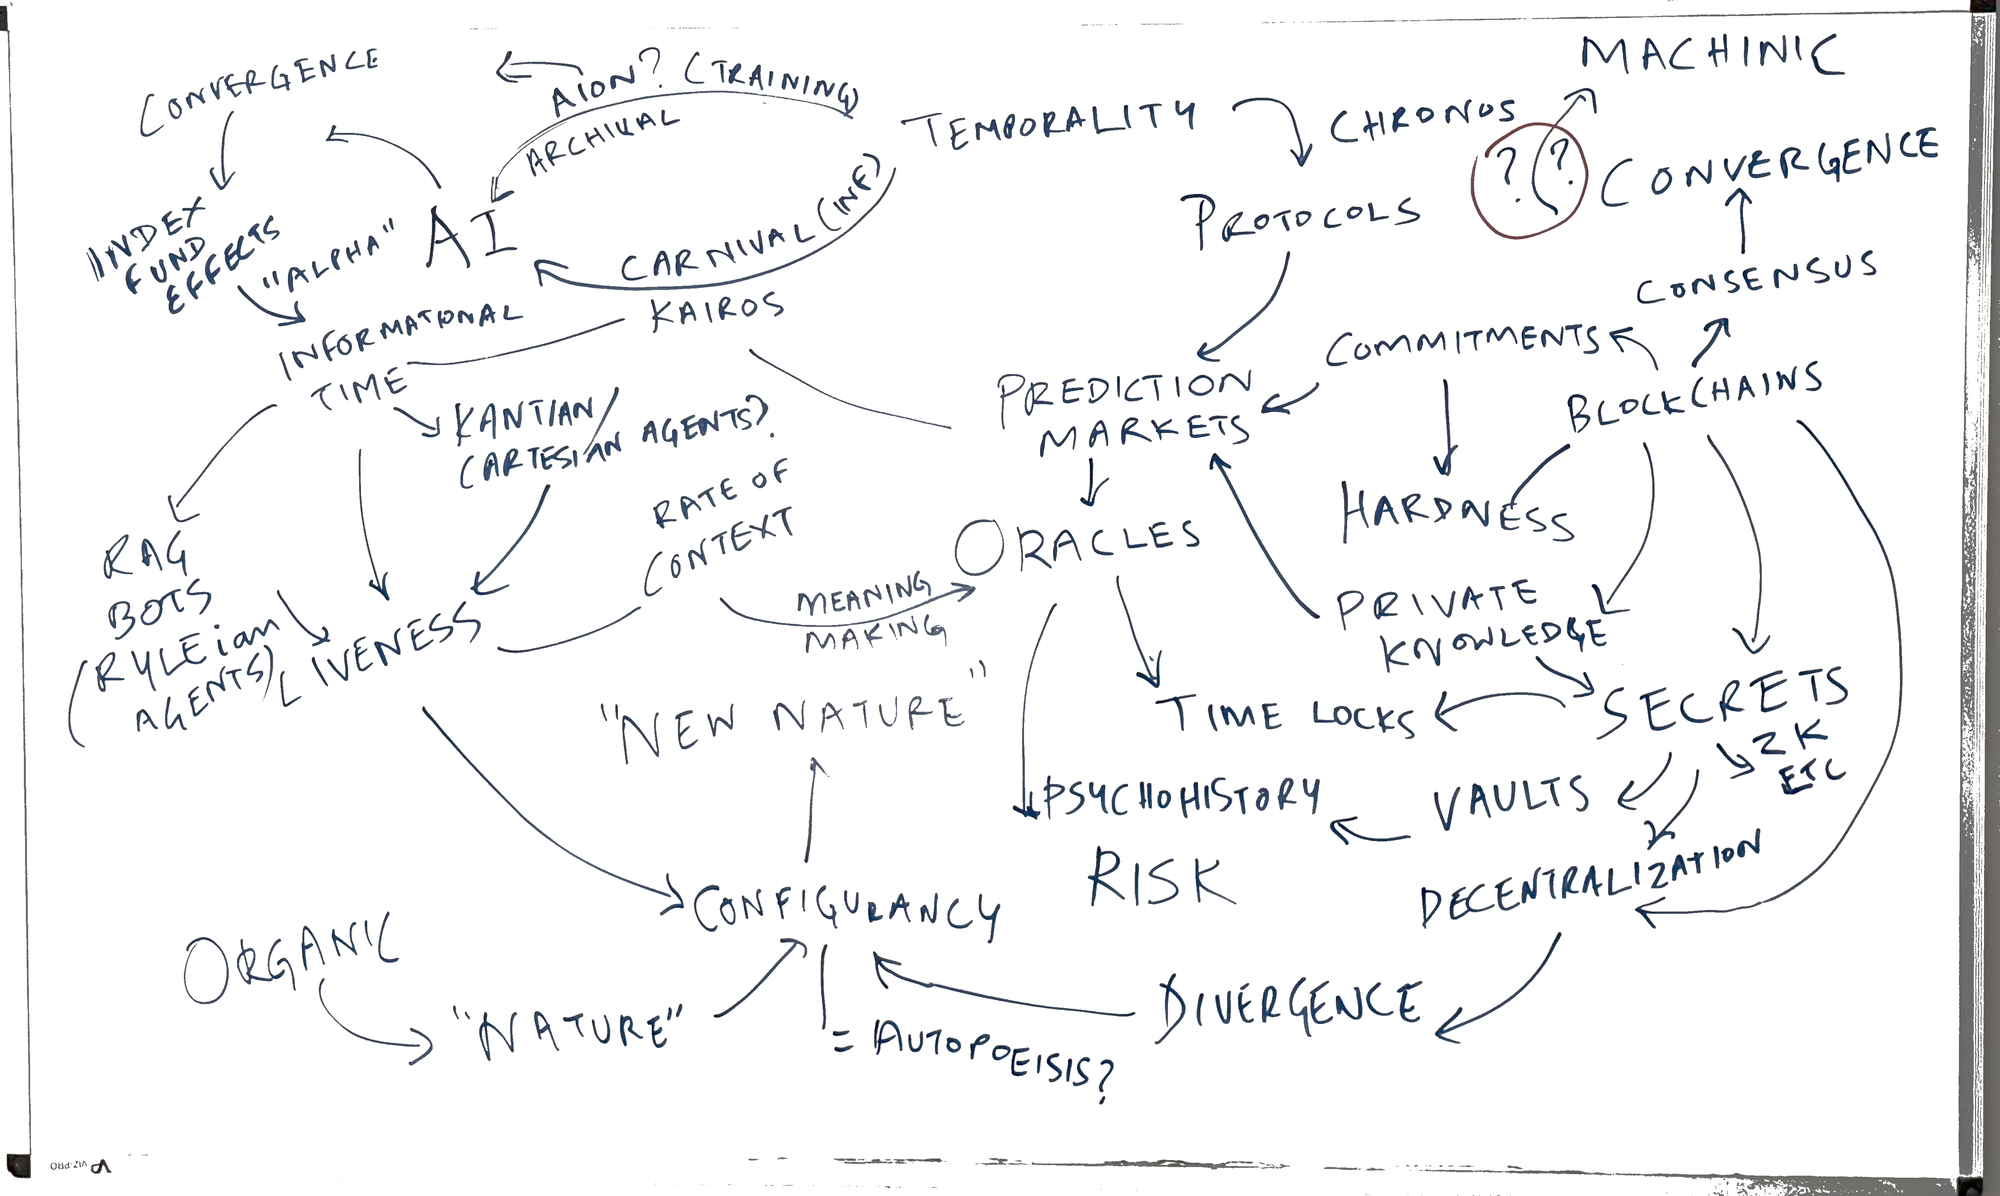 CONVERGENCE
AION? (TRAINING)
ARCHIVAL
TEMPORALITY
CHRONOS
MACHINIC
? ?
CONVERGENCE
PROTOCOLS
INDEX
FUND
EFFECTS
"ALPHA"
AI
CARNIVAL (INF)
KAIROS
CONSENSUS
COMMITMENTS
BLOCKCHAINS
INFORMATIONAL
TIME
PREDICTION
MARKETS
KANTIAN/
CARTESIAN AGENTS?
RATE OF
CONTEXT
HARDNESS
ORACLES
RAG
BOTS
(RYLEian
AGENTS)
LIVENESS
MEANING
MAKING
PRIVATE
KNOWLEDGE
"NEW NATURE"
TIME LOCKS
SECRETS
ZK
ETC
PSYCHOHISTORY
VAULTS
RISK
DECENTRALIZATION
CONFIGURANCY
ORGANIC
"NATURE"
= AUTOPOEISIS?
DIVERGENCE
VIZ-PRO